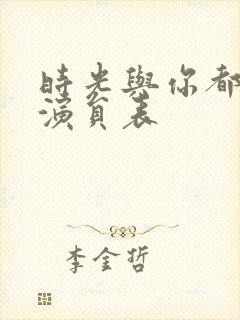 時光與你都
演員表
李金哲